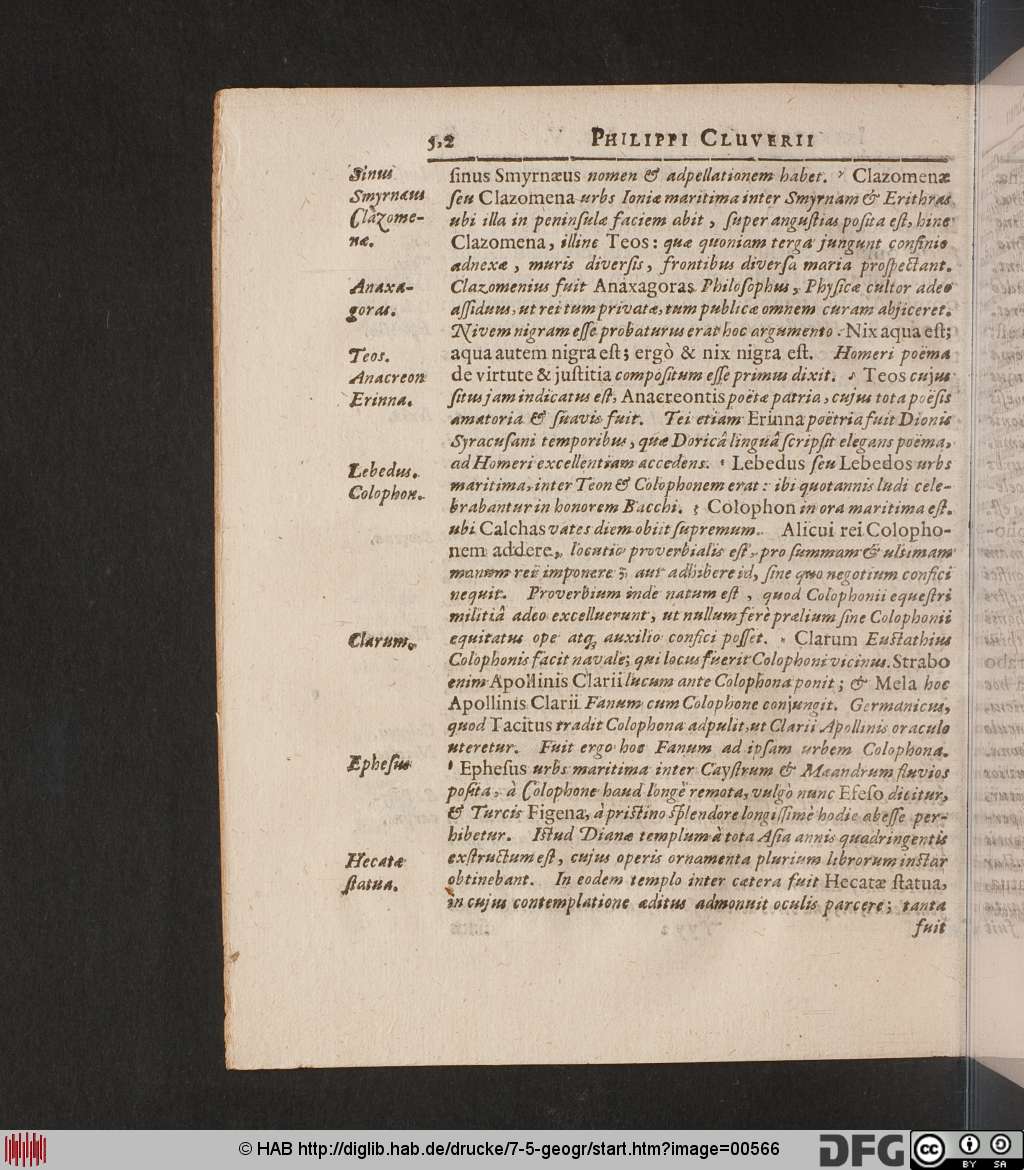 5,2 PHILIPPI CLUVERII
Sinus
Smyrnæus
Clazome-
næ.
Anaxa-
goras.
Teos.
Anacreon
Erinna.
Lebedus.
Colophon.
Clarum.
Ephesus
Hecatæ
statua.
sinus Smyrnæus nomen & adpellationem habet. Clazomenæ
seu Clazomena urbs Ioniæ maritima inter Smyrnam & Erithras
ubi illa in peninsulæ faciem abit, super angustias posita est, hinc
Clazomena, illinc Teos: quæ quoniam terga jungunt confinio
adnexæ, muris diversis, frontibus diversa maria prospectant.
Clazomenius fuit Anaxagoras Philosophus, Physicæ cultor adeo
assiduus, ut rei tum privatæ, tum publicæ omnem curam abjiceret.
Nivem nigram esse probaturus erat hoc argumento: Nix aqua est;
aqua autem nigra est; ergò & nix nigra est. Homeri poëma
de virtute & justitia compositum esse primus dixit. Teos cujus
situs jam indicatus est, Anacreontis poëtæ patria, cujus tota poësis
amatoria & suavis fuit. Tei etiam Erinna poëtria fuit Dionis
Syracusani temporibus, quæ Doricâ linguâ scripsit elegans poëma,
ad Homeri excellentiam accedens. Lebedus seu Lebedos urbs
maritima, inter Teon & Colophonem erat: ibi quotannis ludi cele-
brabantur in honorem Bacchi. Colophon in ora maritima est.
ubi Calchas vates diem obiit supremum. Alicui rei Colopho-
nem addere, locutio proverbialis est, pro summam & ultimam
manum rei imponere; aut adhibere id, sine quo negotium confici
nequit. Proverbium inde natum est, quod Colophonii equestri
militiâ adeo excelluerunt, ut nullum ferè prælium sine Colophonii
equitatus ope atq; auxilio confici posset. Clarum Eustathius
Colophonis facit navale; qui locus fuerit Colophoni vicinus. Strabo
enim Apollinis Clarii lucum ante Colophona ponit; & Mela hoc
Apollinis Clarii Fanum cum Colophone conjungit. Germanicus,
quod Tacitus tradit Colophona adpulit, ut Clarii Apollinis oraculo
uteretur. Fuit ergo hoc Fanum ad ipsam urbem Colophona.
Ephesus urbs maritima inter Caystrum & Mæandrum fluvios
posita, à Colophone haud longè remota, vulgò nunc Efeso dicitur,
& Turcis Figena, à pristino splendore longissimè hodie abesse per-
hibetur. Istud Dianæ templum à tota Asia annis quadringentis
exstructum est, cujus operis ornamenta plurium librorum instar
obtinebant. In eodem templo inter cætera fuit Hecatæ statua,
in cujus contemplatione æditus admonuit oculis parcere; tanta
fuit
© HAB http://diglib.hab.de/drucke/7-5-geogr/start.htm?image=00566
DFG
cc BY SA